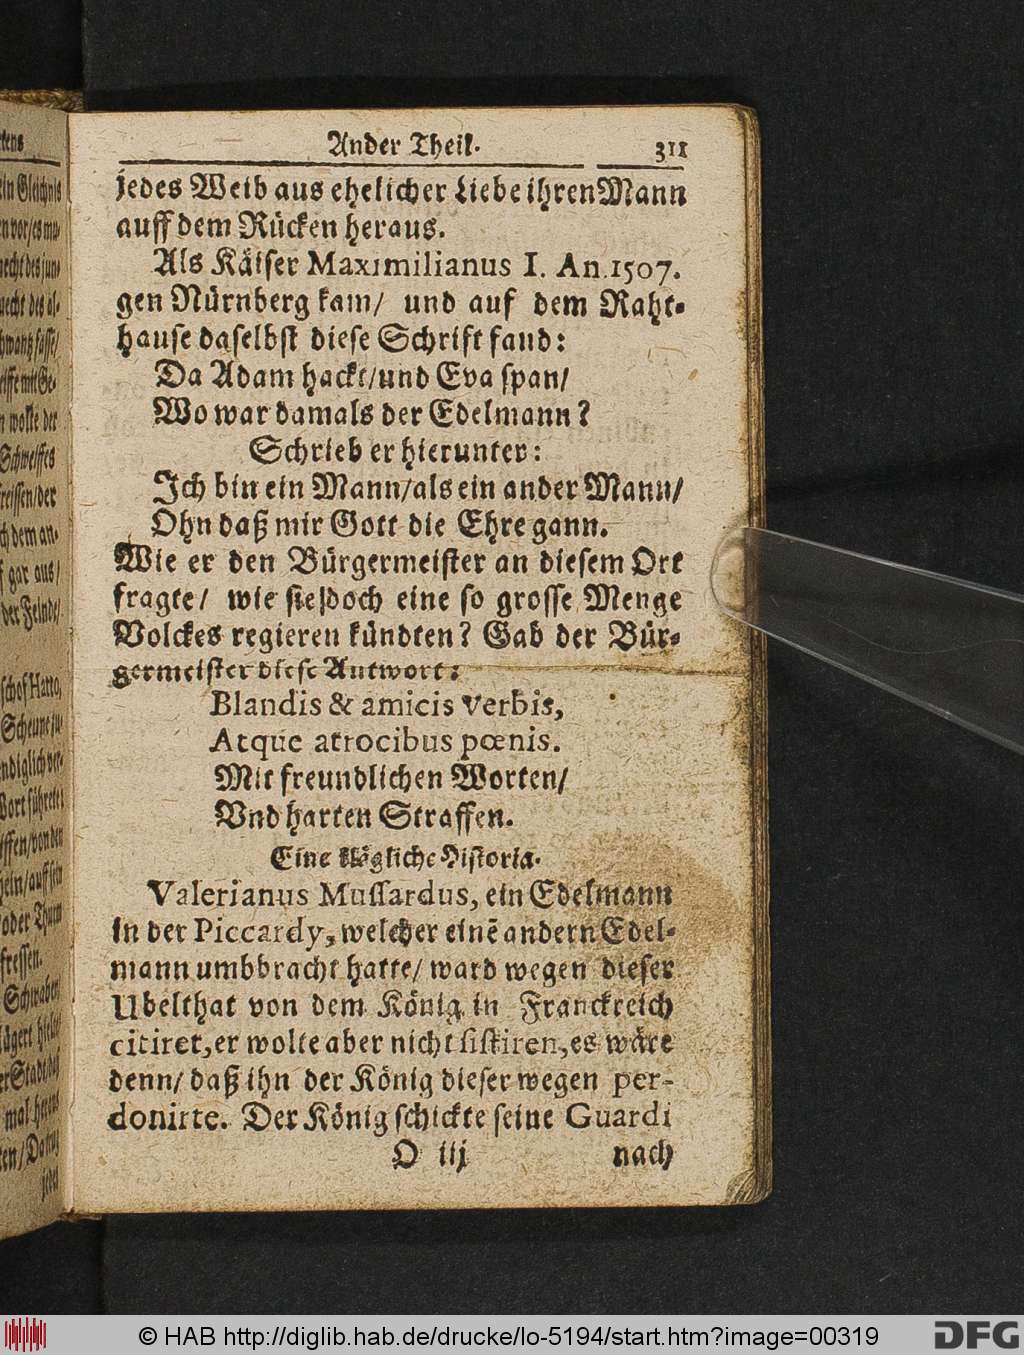 Ander Theil. 311
jedes Weib aus ehelicher Liebe ihren Mann
auff dem Rücken heraus.
Als Käiser Maximilianus I. An. 1507.
gen Nürnberg kam/ und auf dem Raht-
hause daselbst diese Schrift fand:
Da Adam hackt/und Eva span/
Wo war damals der Edelmann?
Schrieb er hierunter:
Ich bin ein Mann/als ein ander Mann/
Ohn daß mir Gott die Ehre gann.
Wie er den Bürgermeister an diesem Ort
fragte/ wie sie doch eine so grosse Menge
Volckes regieren kündten? Gab der Bür-
germeister diese Antwort:
Blandis & amicis verbis,
Atque atrocibus pœnis.
Mit freundlichen Worten/
Und harten Straffen.
Eine klägliche Historia.
Valerianus Mussardus, ein Edelmann
in der Piccardy, welcher einē andern Edel-
mann umbbracht hatte/ ward wegen dieser
Ubelthat von dem König in Franckreich
citiret, er wolte aber nicht sistiren, es wäre
denn/ daß ihn der König dieser wegen per-
donirte. Der König schickte seine Guardi
O iij nach
© HAB http://diglib.hab.de/drucke/lo-5194/start.htm?image=00319
DFG